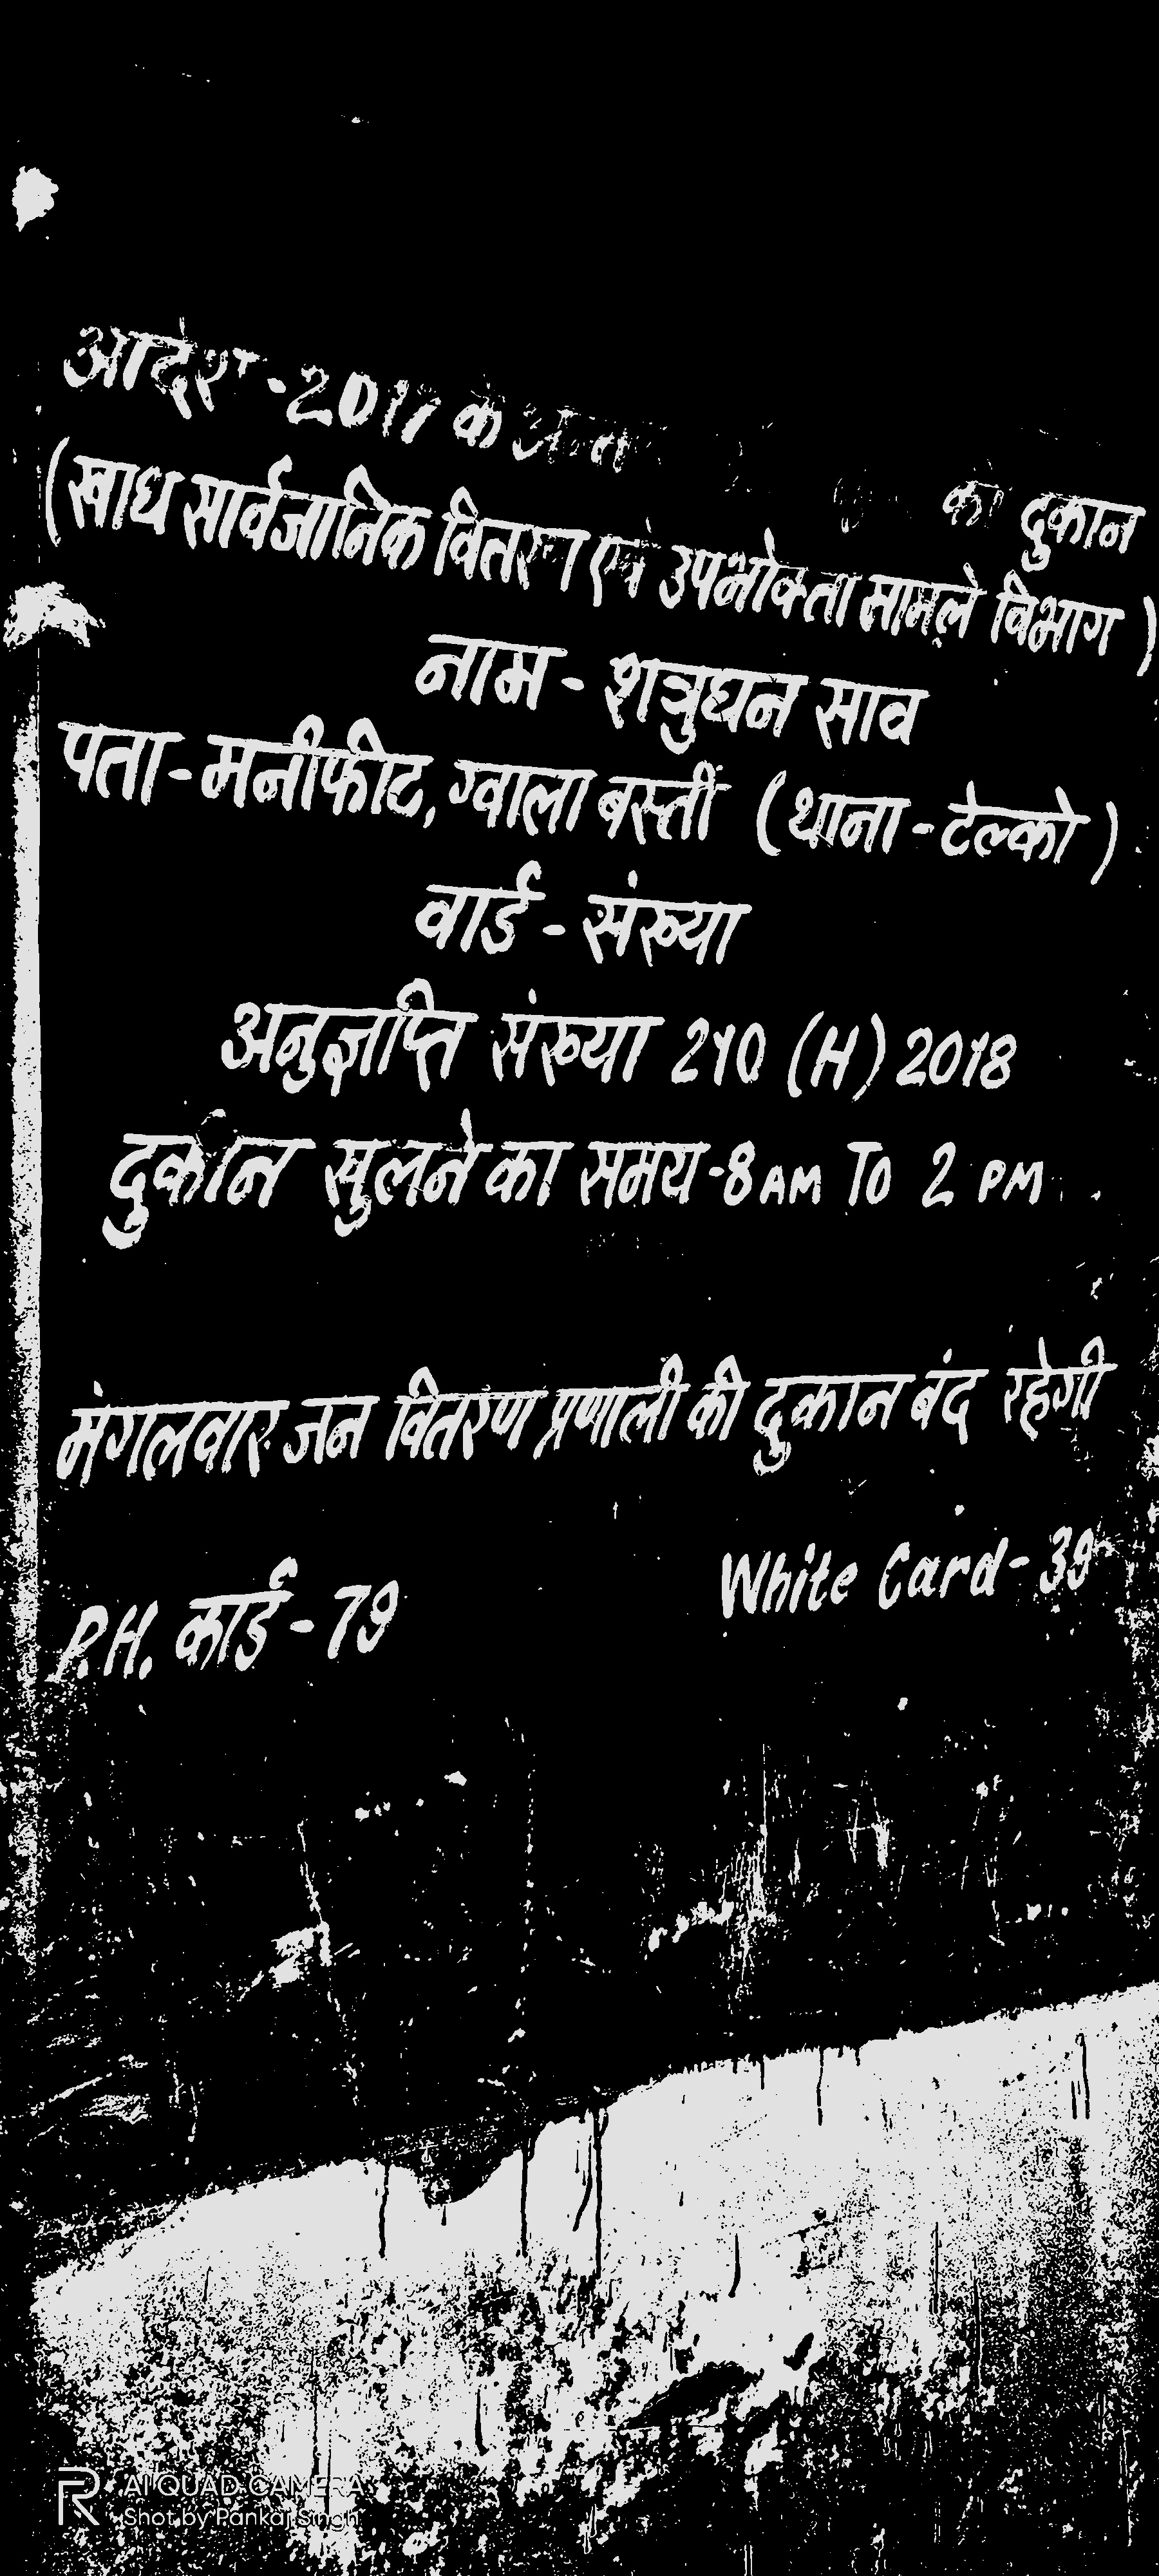 आदेश -2017 के
का दुकान
(खाध सार्वजानिक वितरण एवं उपभोक्ता मामले विभाग)
नाम - शत्रुघन साव
पता - मनीफीट, ग्वाला बस्ती (थाना - टेल्को)
वार्ड - संख्या
अनुज्ञप्ति संख्या 210 (H) 2018
दुकान खुलने का समय -8 AM TO 2 PM
मंगलवार जन वितरण प्रणाली की दुकान बंद रहेगी
White Card - 39
P.H. कार्ड - 79
AI QUAD CAMERA
Shot by Pankaj Singh